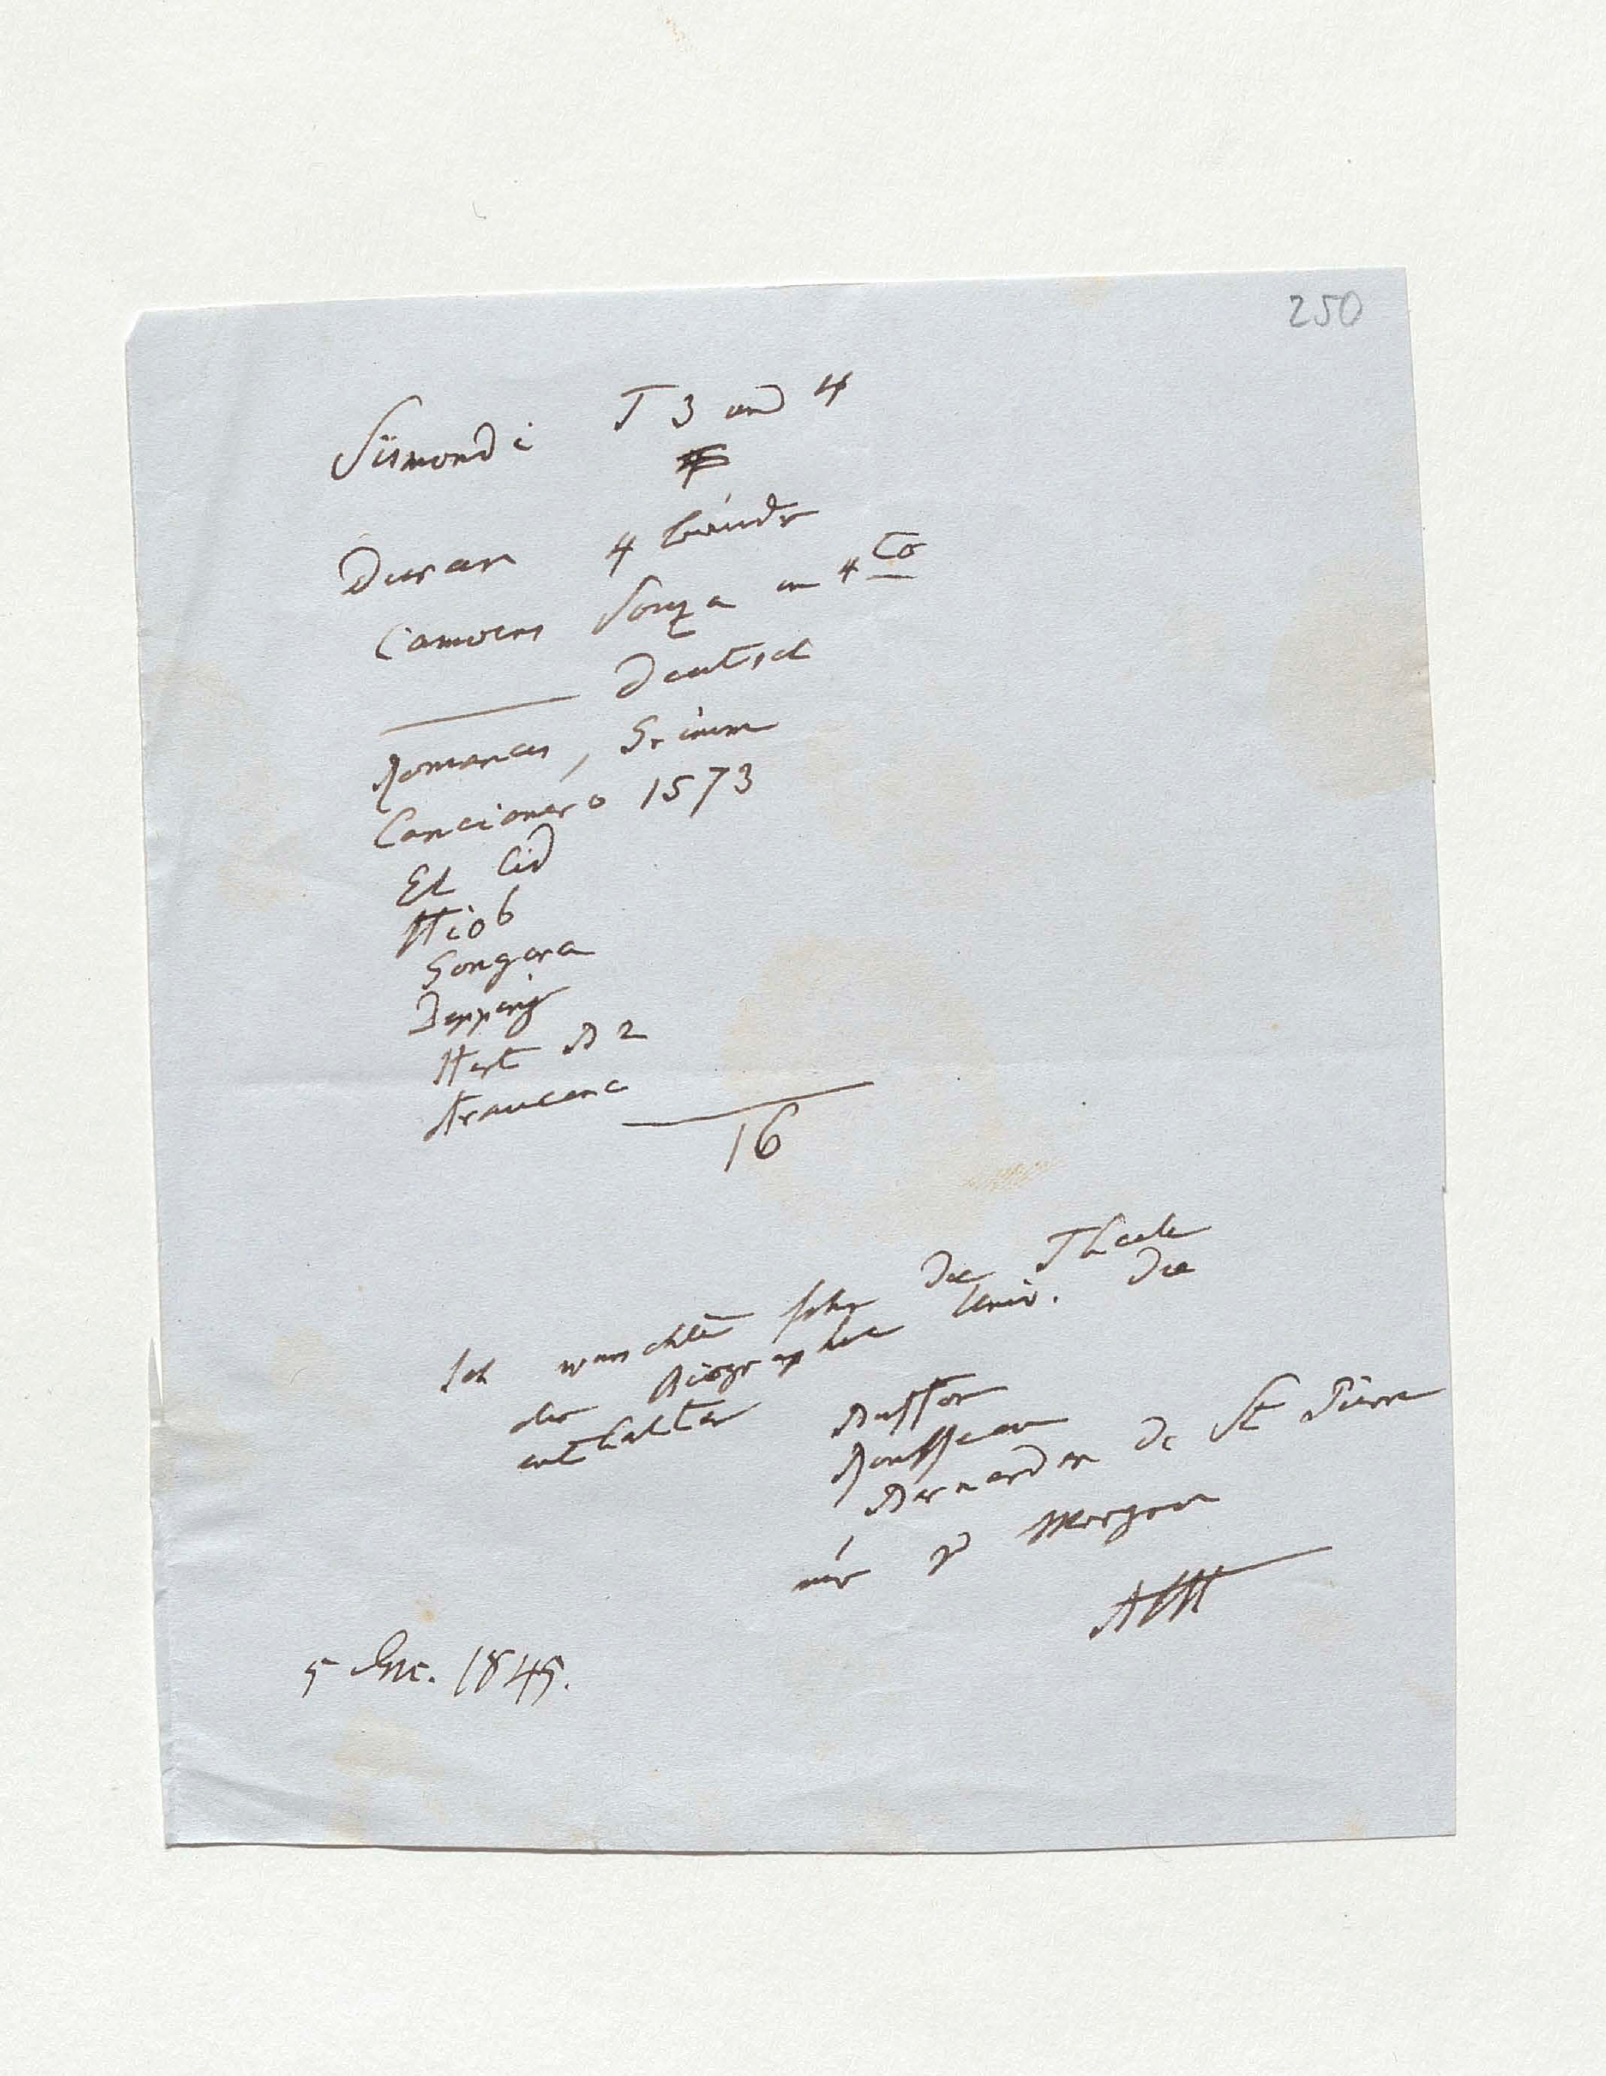 250
Sismondi T 3 und 4
Duran 4 Bände
Camoens Souza in 4to
——— Deutsch
Romances, Grimm
Cancionero 1573
El Cid
Hiob
Gongora
Depping
Hert B 2
Araucana
16
Ich wünschte sehr die Theile
der Biographie Univ. die
enthalten Buffon
Rousseau
Bernardin de St Pierre
nur Morgen
AHt
5 Dec. 1845.